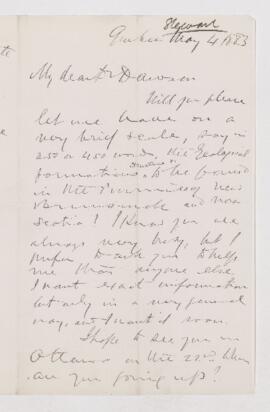 Stewart
Quebec May 4 1883
My dear Dr Dawson
Will you please
let me have on a
very brief scale, say in
350 or 450 words, the Geological
formations to be found
in the Province of New
Brunswick and Nova
Scotia! I know you are
always very busy, but I
prefer to ask you to help
me than anyone else.
I want exact information
but only in a very general
way, and I want it soon.
I hope to see you in
Ottawa on the 22nd. When
are you going up?